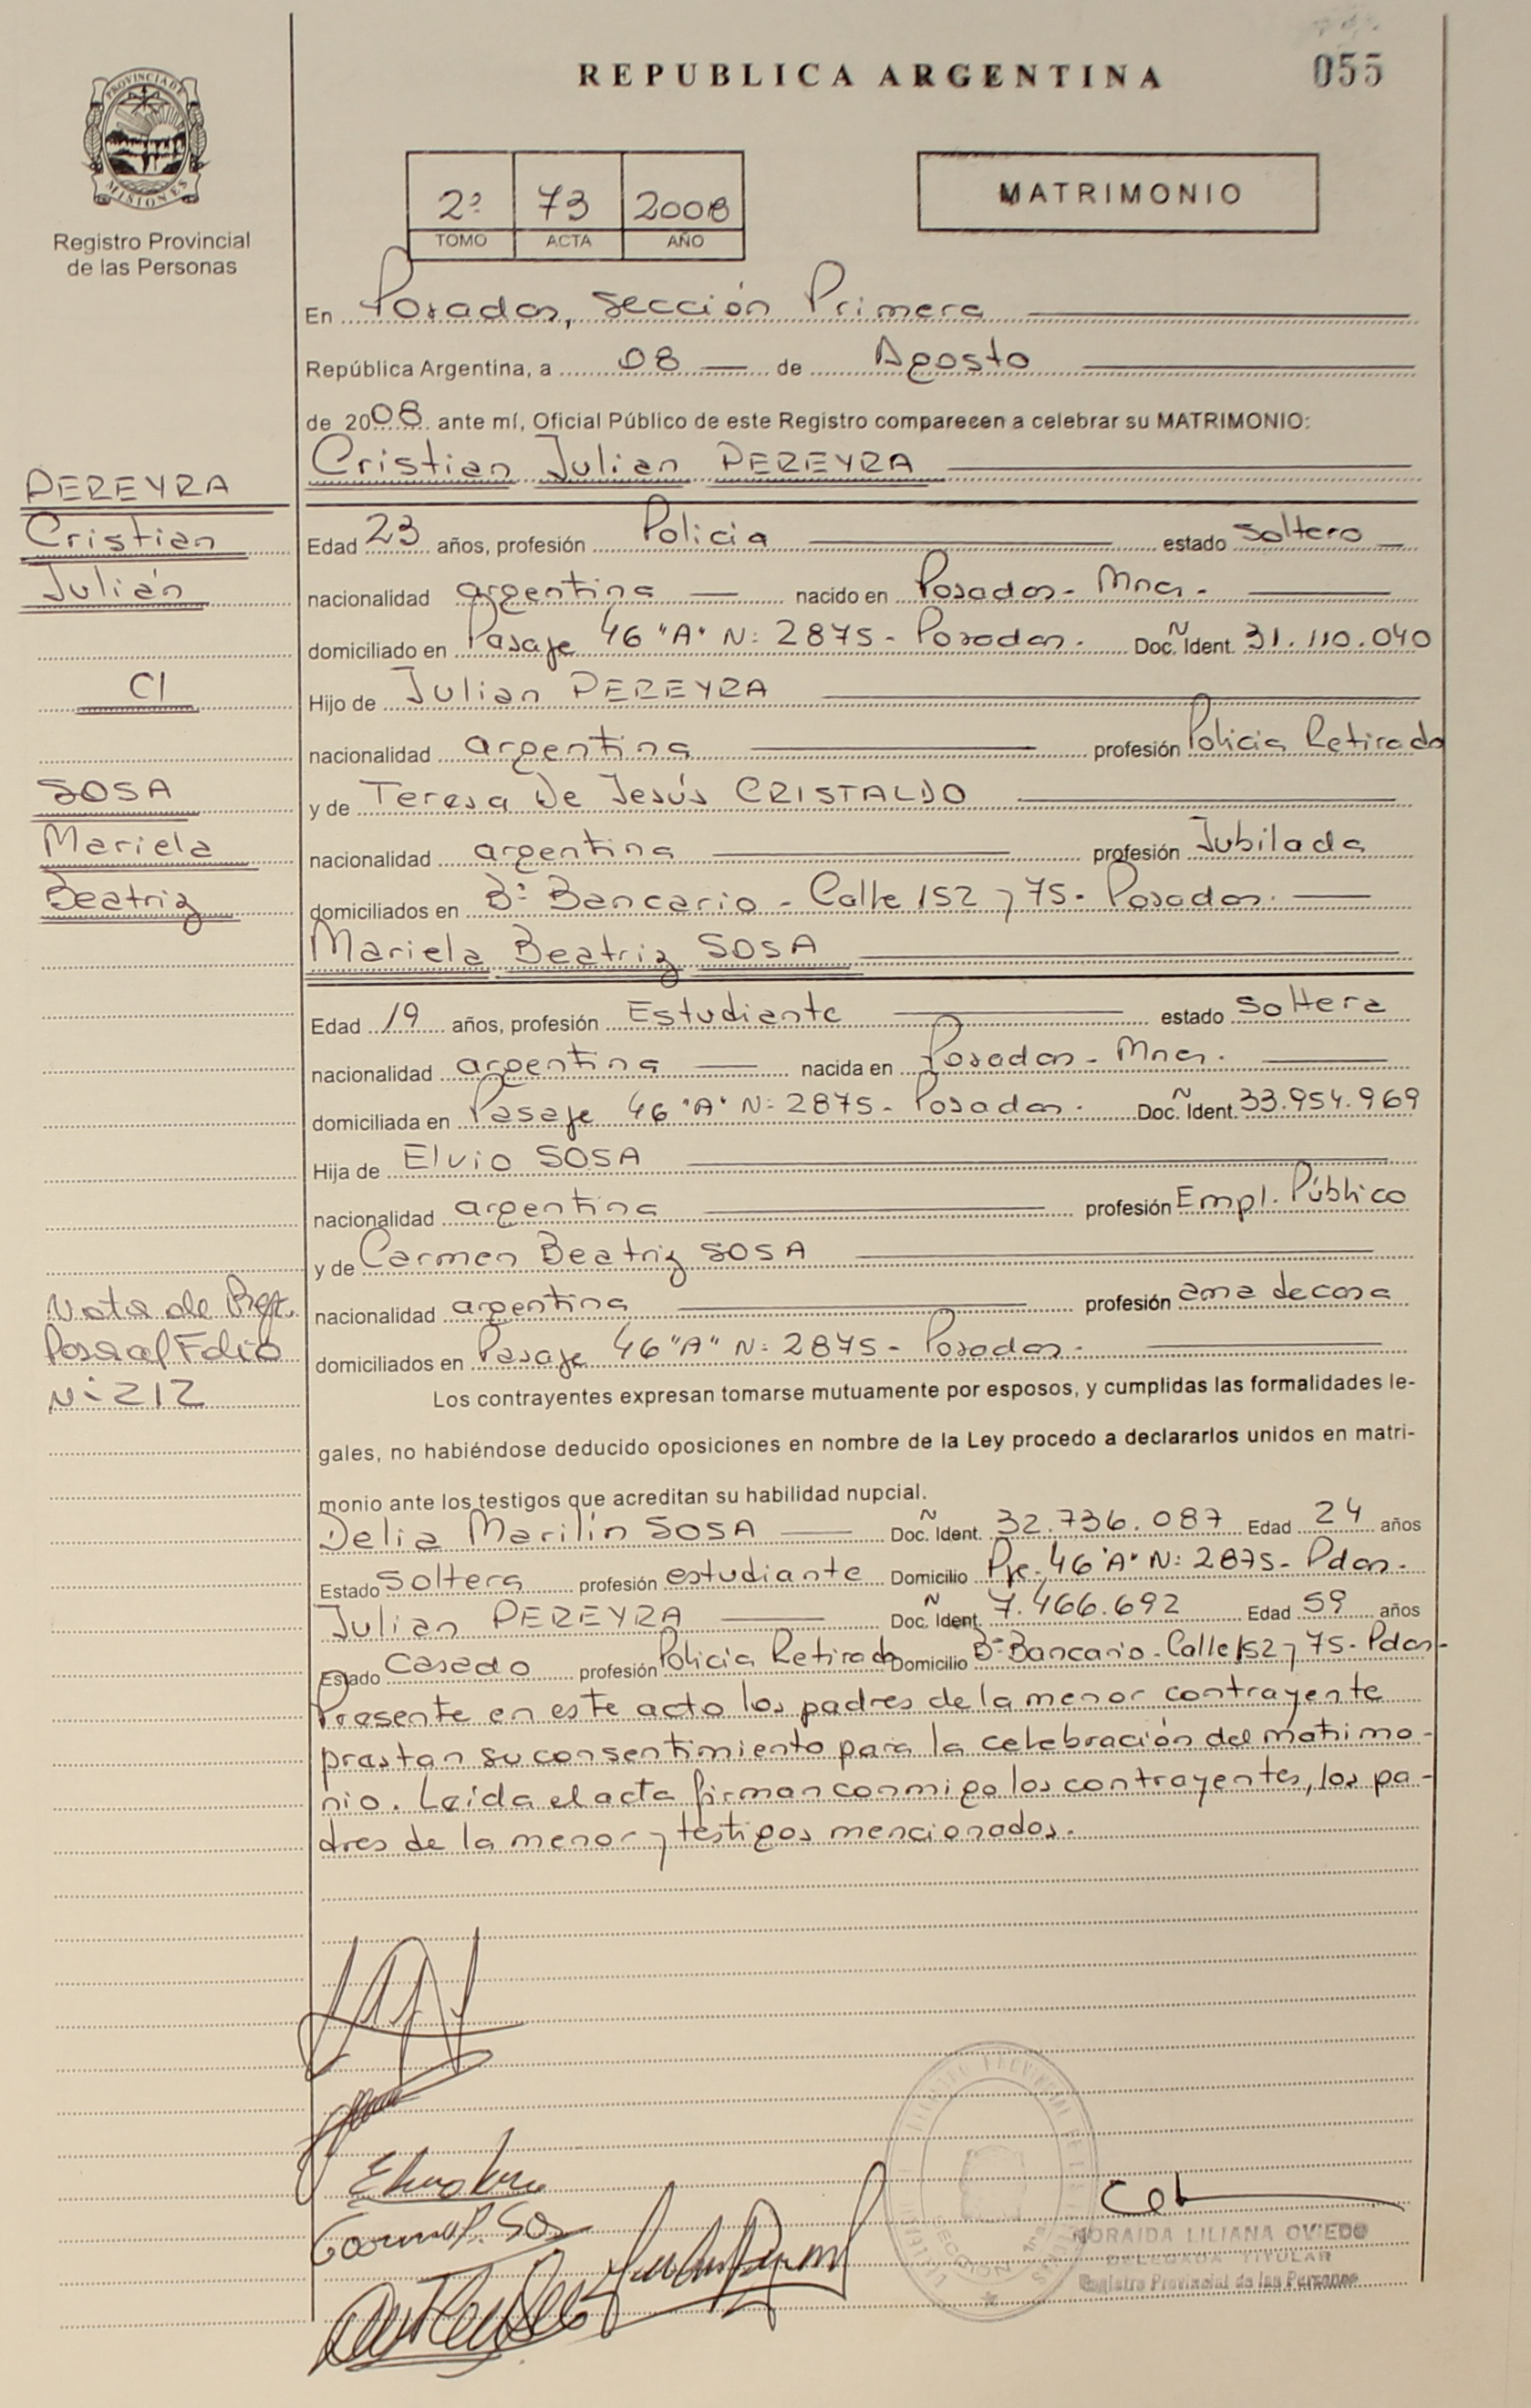 REPUBLICA ARGENTINA
055
PROVINCIA DE MISIONES
Registro Provincial
de las Personas
2º 73 2008
TOMO ACTA AÑO
MATRIMONIO
En Posadas, Sección Primera
República Argentina, a 08 de Agosto
de 2008 ante mí, Oficial Público de este Registro comparecen a celebrar su MATRIMONIO:
Cristian Julian PEREYRA
PEREYRA
Cristian
Julián
C/
SOSA
Mariela
Beatriz
Edad 23 años, profesión Policia estado Soltero
nacionalidad argentina nacido en Posadas - Mnes.
domiciliado en Pasaje 46 "A" Nº 2875 - Posadas. Doc. Ñ Ident. 31.110.040
Hijo de Julian PEREYRA
nacionalidad argentina profesión Policia Retirado
y de Teresa De Jesús CRISTALDO
nacionalidad argentina profesión Jubilada
domiciliados en Bº Bancario - Calle 152 y 75 - Posadas.
Mariela Beatriz SOSA
Edad 19 años, profesión Estudiante estado Soltera
nacionalidad argentina nacida en Posadas - Mnes.
domiciliada en Pasaje 46 "A" Nº 2875 - Posadas. Doc. Ñ Ident. 33.954.969
Hija de Elvio SOSA
nacionalidad argentina profesión Empl. Público
y de Carmen Beatriz SOSA
nacionalidad argentina profesión ama de casa
domiciliados en Pasaje 46 "A" Nº 2875 - Posadas.
Nota de Ref.
Pasa al Folio
Nº 212
Los contrayentes expresan tomarse mutuamente por esposos, y cumplidas las formalidades le-
gales, no habiéndose deducido oposiciones en nombre de la Ley procedo a declararlos unidos en matri-
monio ante los testigos que acreditan su habilidad nupcial.
Delia Marilín SOSA Doc. Ñ Ident. 32.736.087 Edad 24 años
Estado Soltera profesión estudiante Domicilio Pje. 46 "A" Nº 2875 - Pdas.
Julian PEREYRA Doc. Ñ Ident. 7.466.692 Edad 59 años
Estado Casado profesión Policia Retirado Domicilio Bº Bancario - Calle 152 y 75 - Pdas-
Presente en este acto los padres de la menor contrayente
prestan su consentimiento para la celebración del matrimo-
nio. Leída el acta firman conmigo los contrayentes, los pa-
dres de la menor y testigos mencionados.
NORAIDA LILIANA OVIEDO
DELEGADA TITULAR
Registro Provincial de las Personas